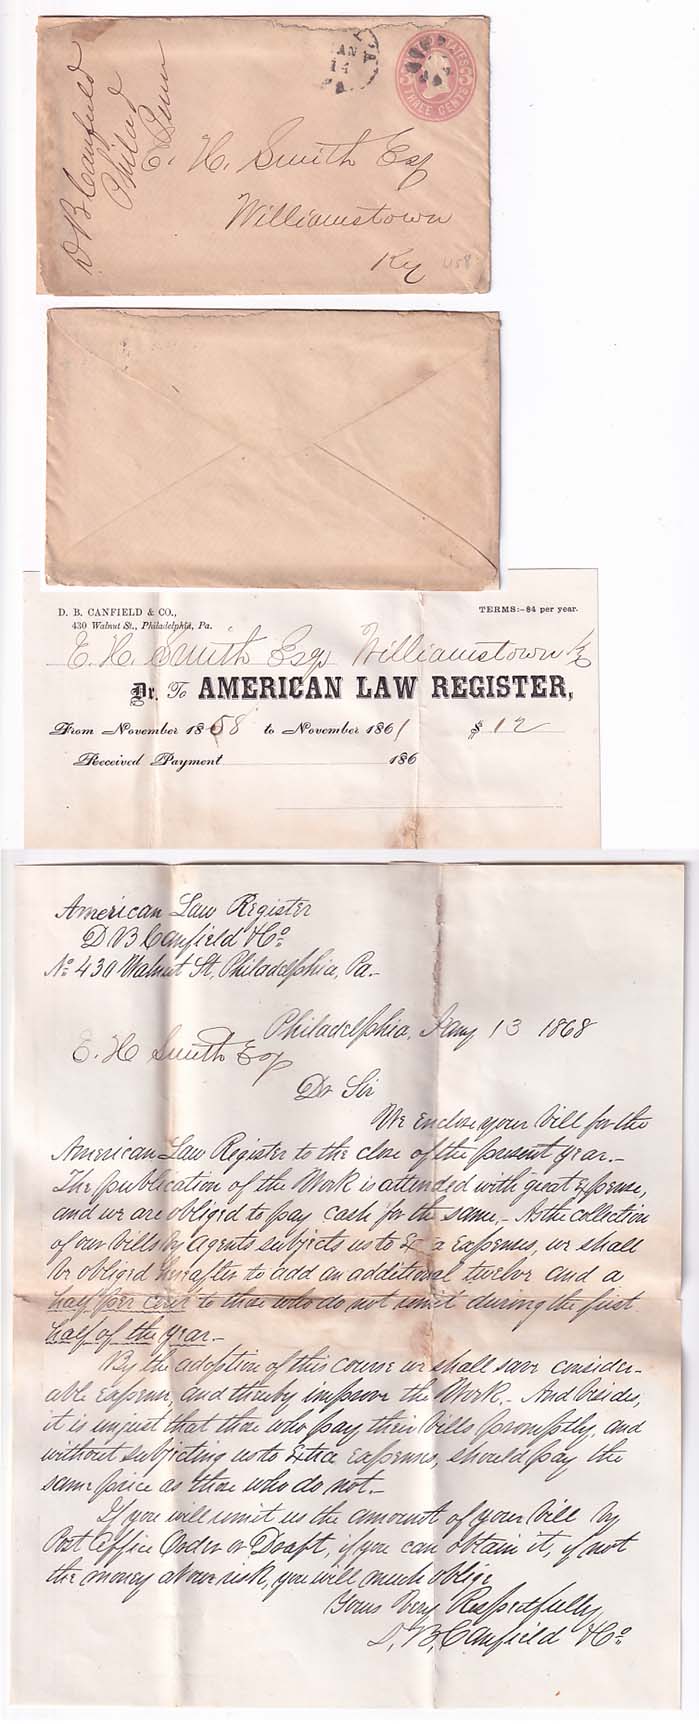 D B Canfield
Philad
Penn
JAN
14
PA.
STATES
THREE CENTS
E. H. Smith Esq
Williamstown
Ky
U58
D. B. CANFIELD & CO.,
430 Walnut St., Philadelphia, Pa.
TERMS:–$4 per year.
E. H. Smith Esqr Williamstown Ky
Dr. To AMERICAN LAW REGISTER,
From November 1858 to November 1861 $12
Received Payment 186
American Law Register
D B Canfield & Co.
No. 430 Walnut St, Philadelphia, Pa.–
Philadelphia, Jany 13 1868
E. H Smith Esq
Dr Sir
We enclose your bill for the
American Law Register to the close of the present year.–
The publication of the Work is attended with great Expense,
and we are obliged to pay cash for the same.– As the collection
of our bills by agents subjects us to Extra expenses, we shall
be obliged hereafter to add an additional twelve and a
half per cent to those who do not remit during the first
half of the year.–
By the adoption of this course we shall save consider-
able expense, and thereby improve the Work.– And besides,
it is unjust that those who pay their bills promptly, and
without subjecting us to Extra expenses, should pay the
same price as those who do not.–
If you will remit us the amount of your bill by
Post Office Order or Draft, if you can obtain it, if not
the money at our risk, you will much oblige
Yours Very Respectfully
D, B, Canfield & Co.